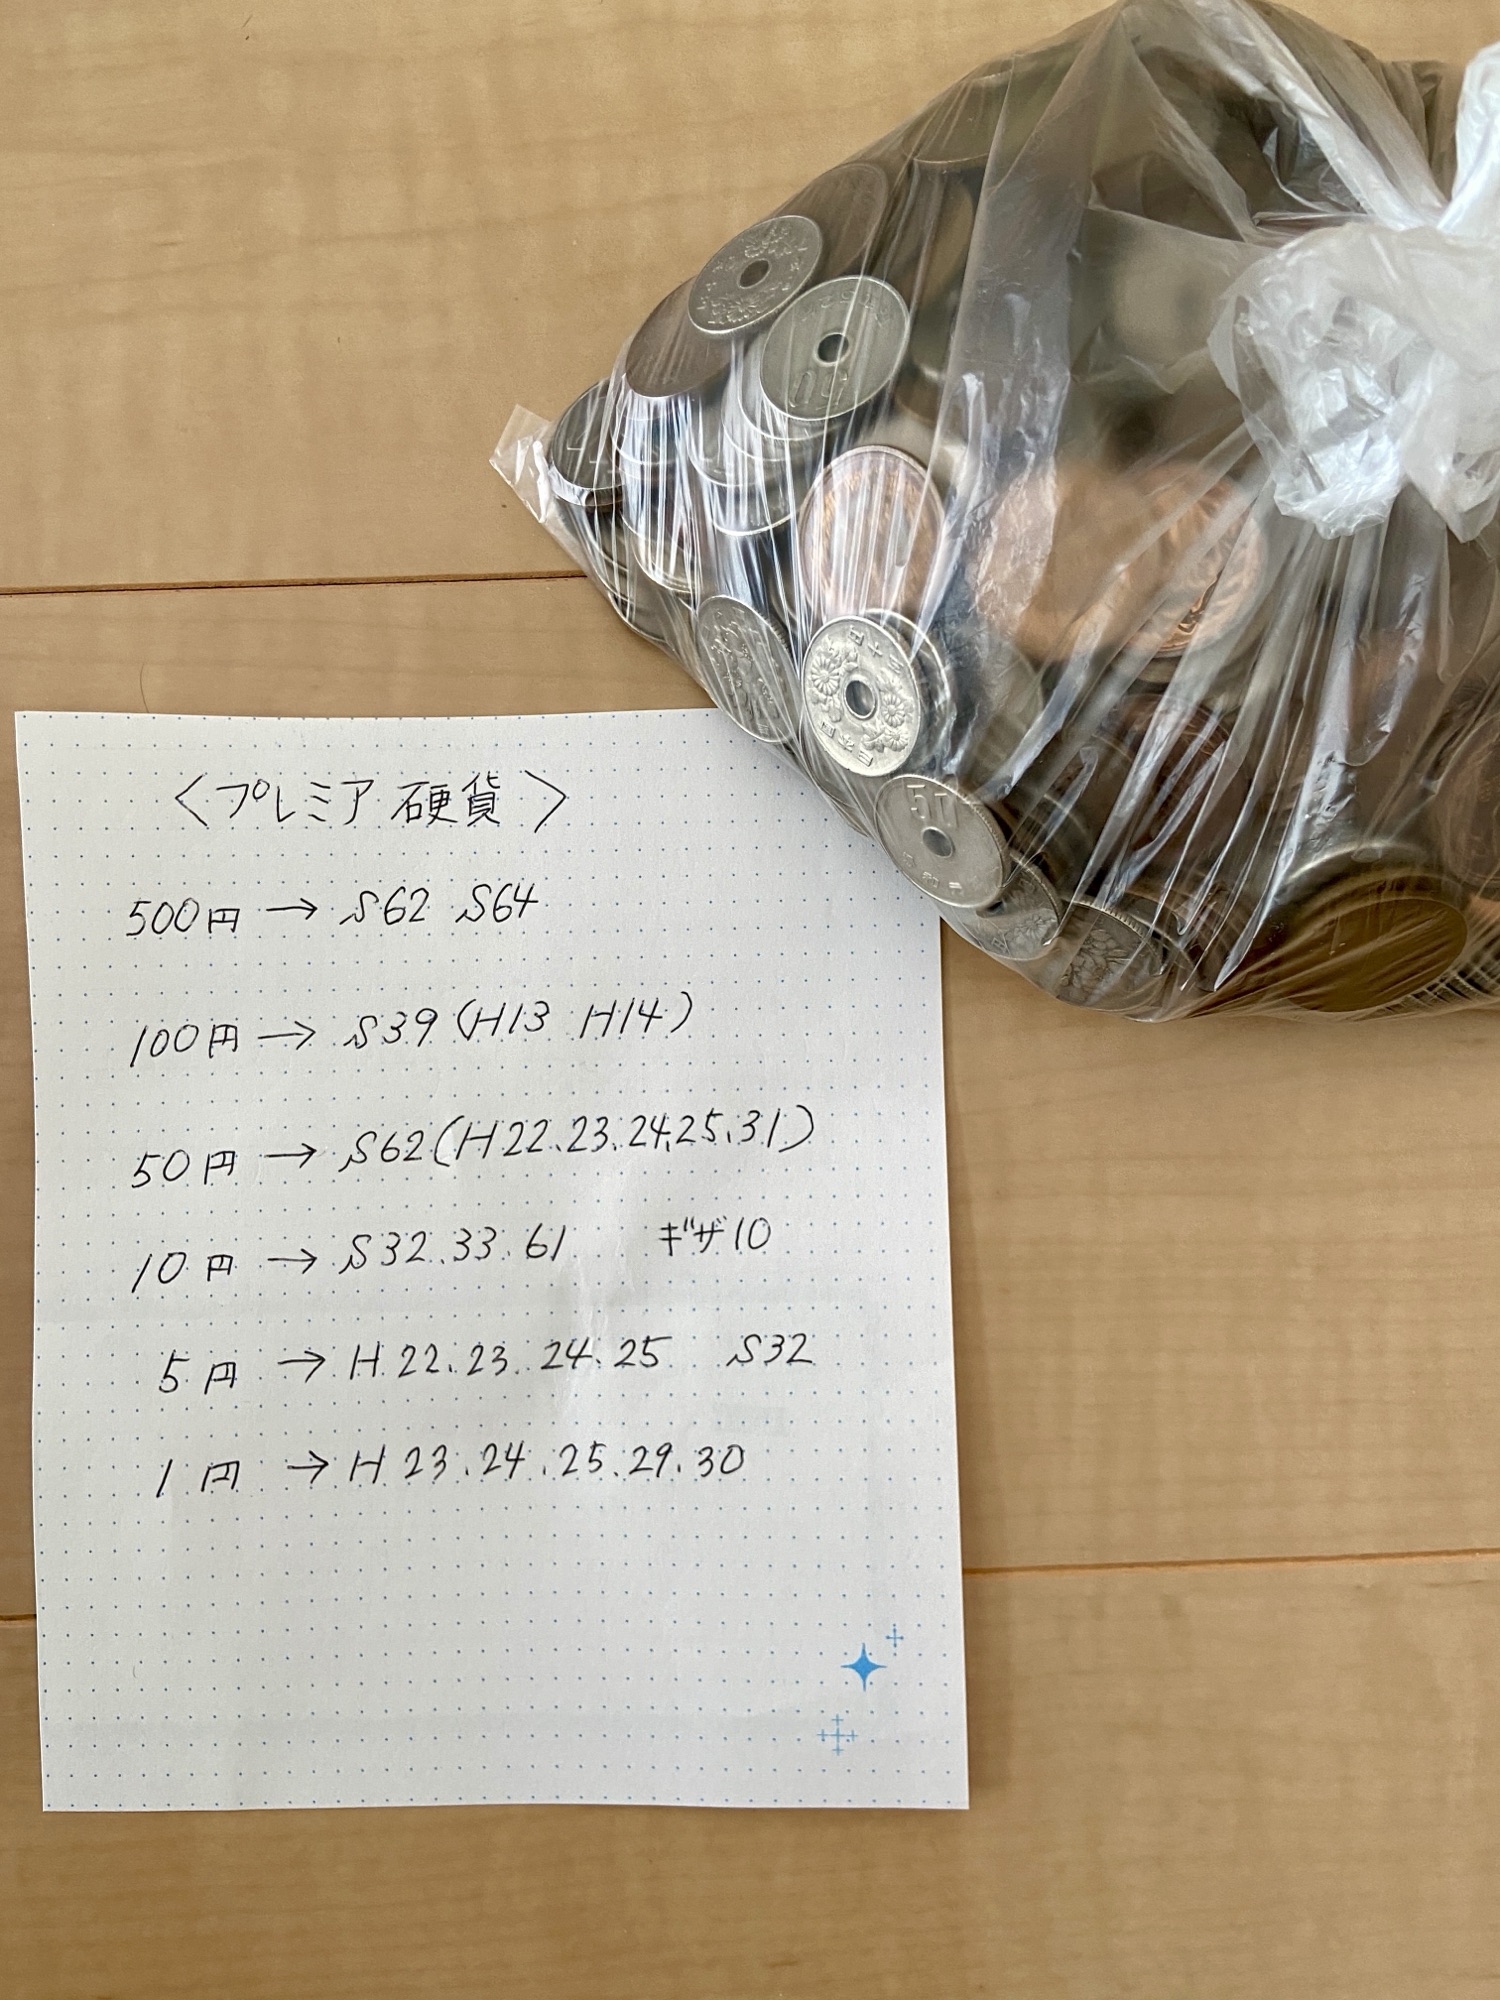 五十円
日本国
50
50
〈プレミア硬貨〉
500円 → S62 S64
100円 → S39(H13 H14)
50円 → S62(H22.23.24.25.31)
10円 → S32.33.61 ギザ10
5円 → H 22.23.24.25 S32
1円 → H 23.24.25.29.30